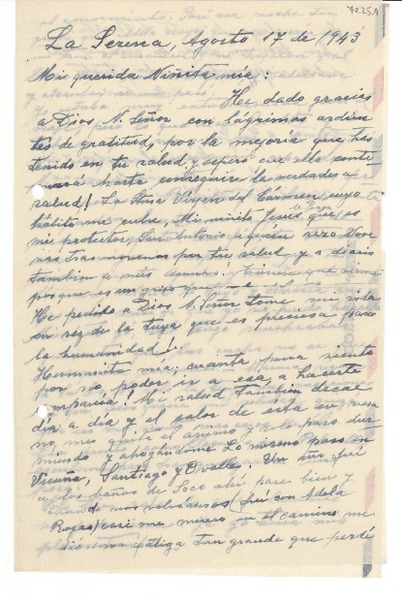 7225.11
La Serena, Agosto 17 de 1943
Mi querida Niñita mía:
He dado gracias
a Dios N. Señor con lágrimas ardien
tes de gratitud, por la mejoría que has
tenido en tu salud y espero que ella conti
nuará hasta conseguir la verdadera
salud! La Stma Virgen del Cármen cuyo
hábito me cubre, Mi niñito Jesús que es
mi protector, San Antonio a quien rezo
tras novenas por tu salud y a diario
tambien a mis
porque es un
He pedido a Dios N. Señor tome mi vida
en vez de la tuya que es preciosa para
la humanidad!
Hermanita mia; cuánta pena siento
por no poder ir a esa, a hacerte
compañia! Mi salud tambien decae
día a día y el calor de ésta en vera
no, me quita el ánimo y solo paso dur
miendo y ahogándome Lo mismo paso en
Vicuña, Santiago y Ovalle. Un año fuí
a los baños de Soco ahí pasé bien y
cuando nos volvíamos (fuí con Adela
Rojas) casi me muero en el camino me
dió una fatiga tan grande que perdí